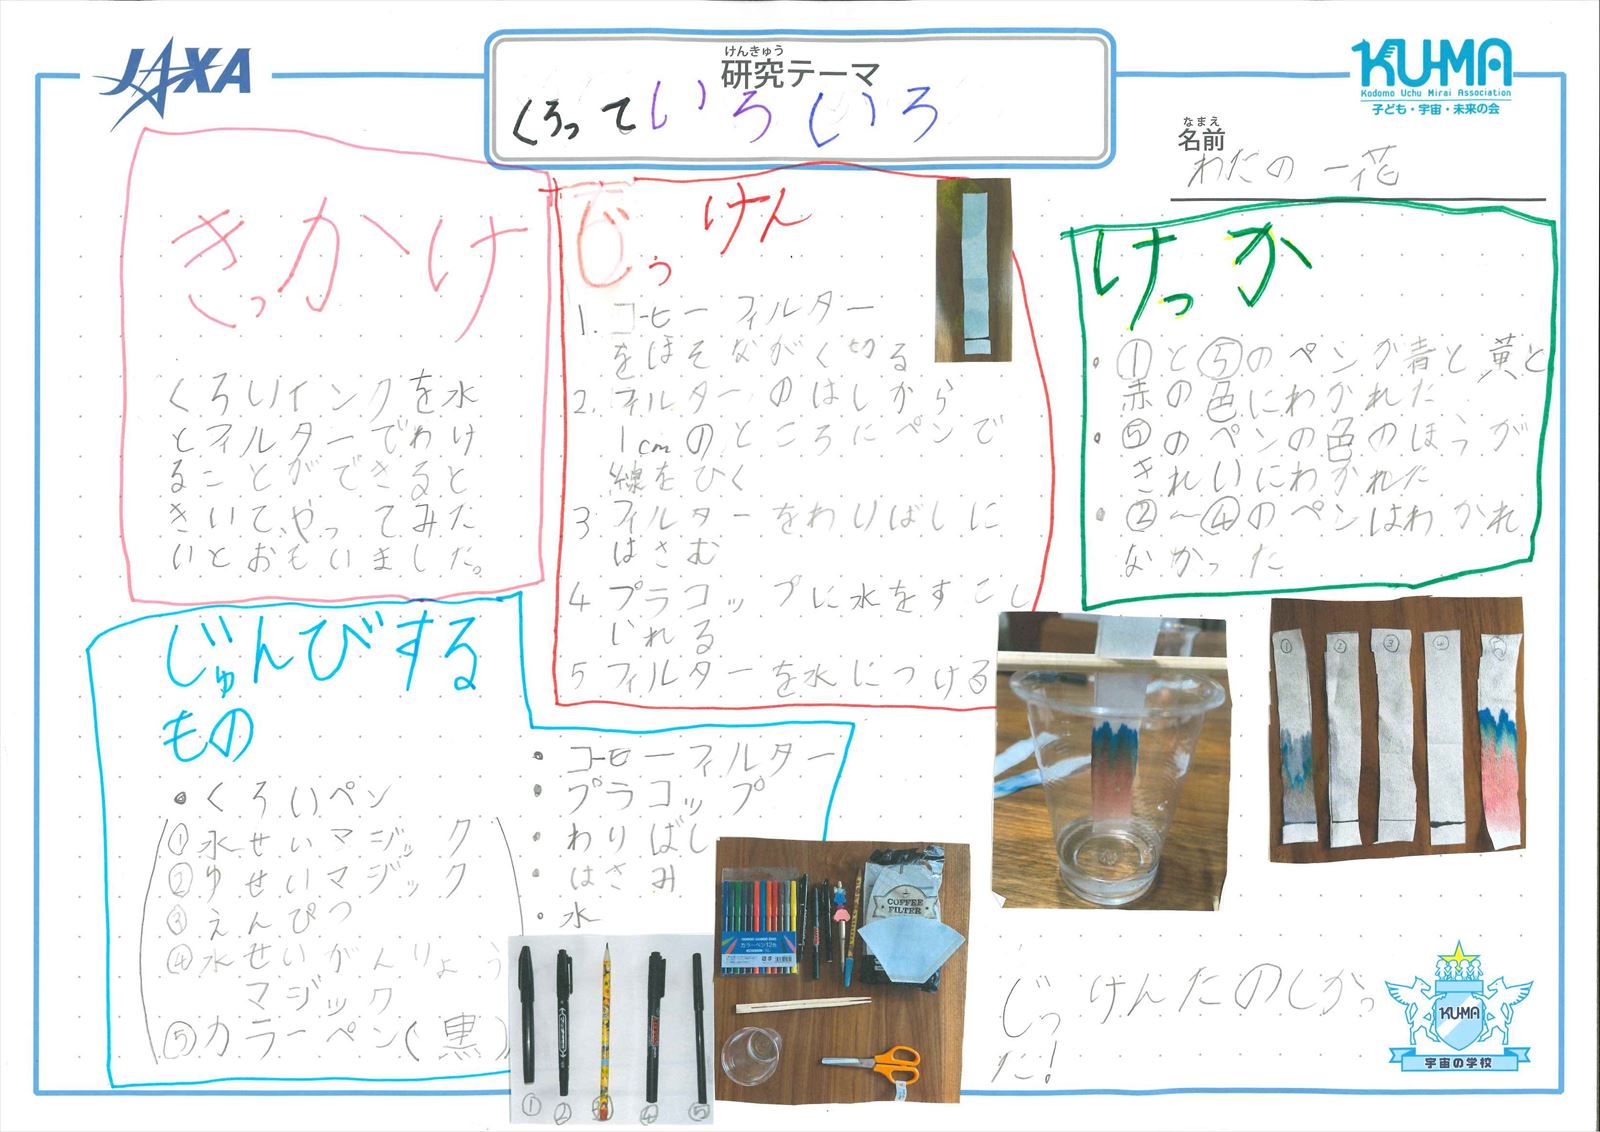 JAXA
けんきゅう
研究テーマ
くろっていろいろ
KU-MA
Kodomo Uchu Mirai Association
子ども・宇宙・未来の会
なまえ
名前
わたの 一花
きっかけ
くろいインクを水
とフィルターでわけ
ることができると
きいて、やってみた
いとおもいました。
じっけん
1. コーヒーフィルター
をほそながく切る
2. フィルターのはしから
1cmのところにペンで
線をひく
3 フィルターをわりばしに
はさむ
4 プラコップに水をすこし
いれる
5 フィルターを水につける
けっか
・①と⑤のペンが青と黄と
赤の色にわかれた
・⑤のペンの色のほうが
きれいにわかれた
・②〜④のペンはわかれ
なかった
① ② ③ ④ ⑤
じゅんびする
もの
・くろいペン
①水せいマジック
②ゆせいマジック
③えんぴつ
④水せいがんりょう
マジック
⑤カラーペン(黒)
・コーヒーフィルター
・プラコップ
・わりばし
・はさみ
・水
① ② ③ ④ ⑤
カラーペン12色
COFFEE
FILTER
じっけんたのしかっ
た!
KU-MA
宇宙の学校